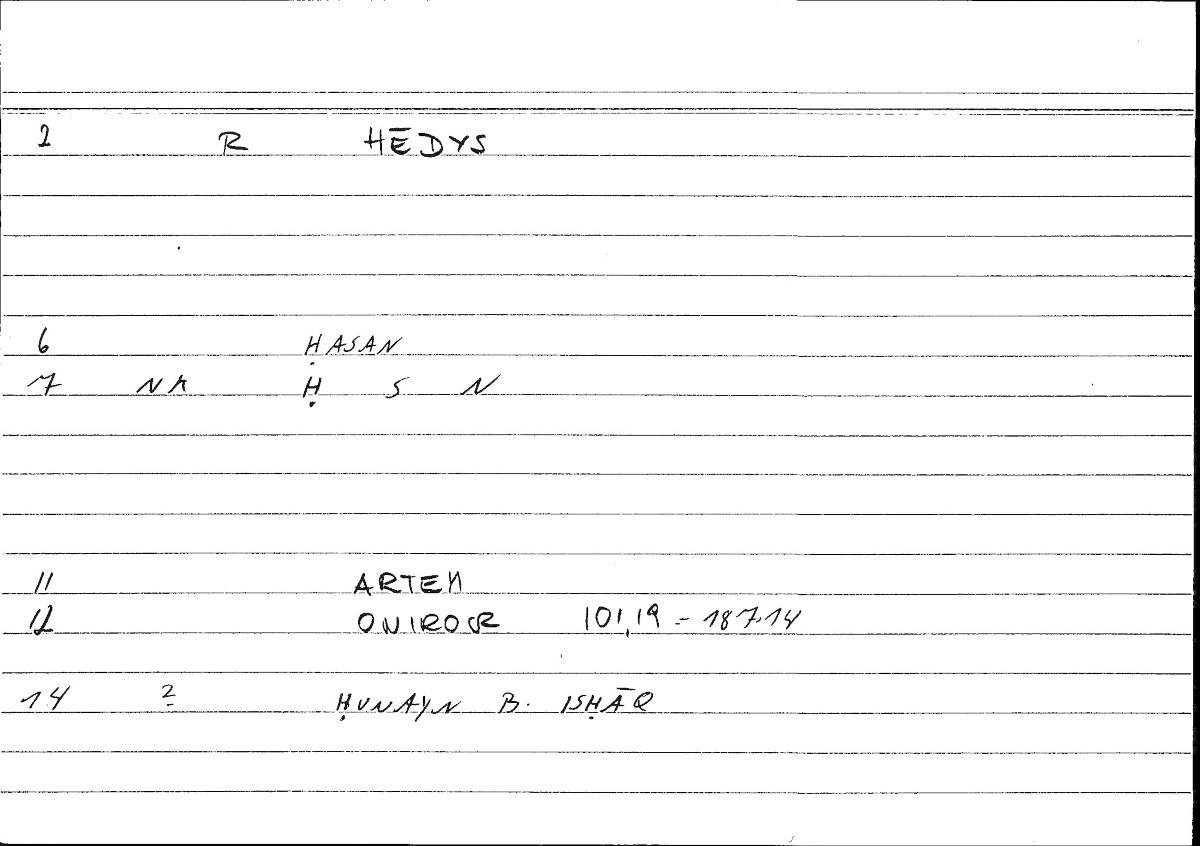 2 R HĒDYS
6 ḤASAN
7 NA Ḥ S N
11 ARTEM
12 ONIROCR 101,19 - 187.14
14 2 ḤUNAYN B. ISḤĀQ